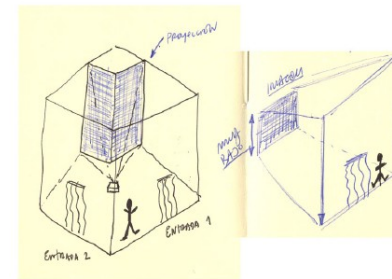 PROYECCIÓN
ENTRADA 1
ENTRADA 2
IMAGEN
MUY
BAJO